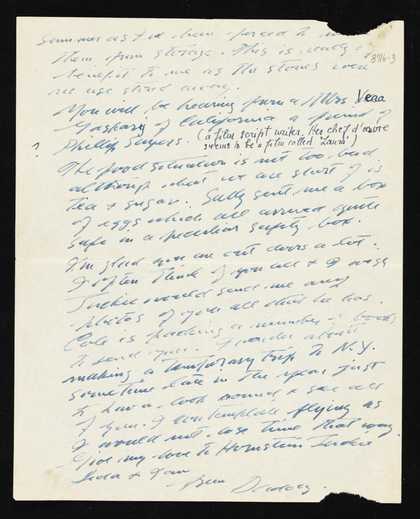 summer as I've been forced to
them from storage. This is really a
benefit to me as the stones were
no use stored away.
8716-3
You will be hearing from a Mrs Vera
Caspary of California a friend of
Philip Sayers. (a film script writer. Her chef d'œuvre
seems to be a film called Laura)
?
The food situation is not too bad
although what we are short of is
tea & sugar. Sally sent me a box
of eggs which all arrived quite
safe in a peculiar safety box.
I'm glad you are out doors a lot.
I often think of you all & I wish
Jackie would send me any
photos of you all that he has.
Cole is packing a number of books
to send you. I wonder about
making a temporary trip to N.Y.
sometime late in the year just
to have a look round & see all
of you. I contemplate flying as
I would not lose time that way.
Give my love to Hornstein Jackie
Leda & Xan
Ever Daddy.